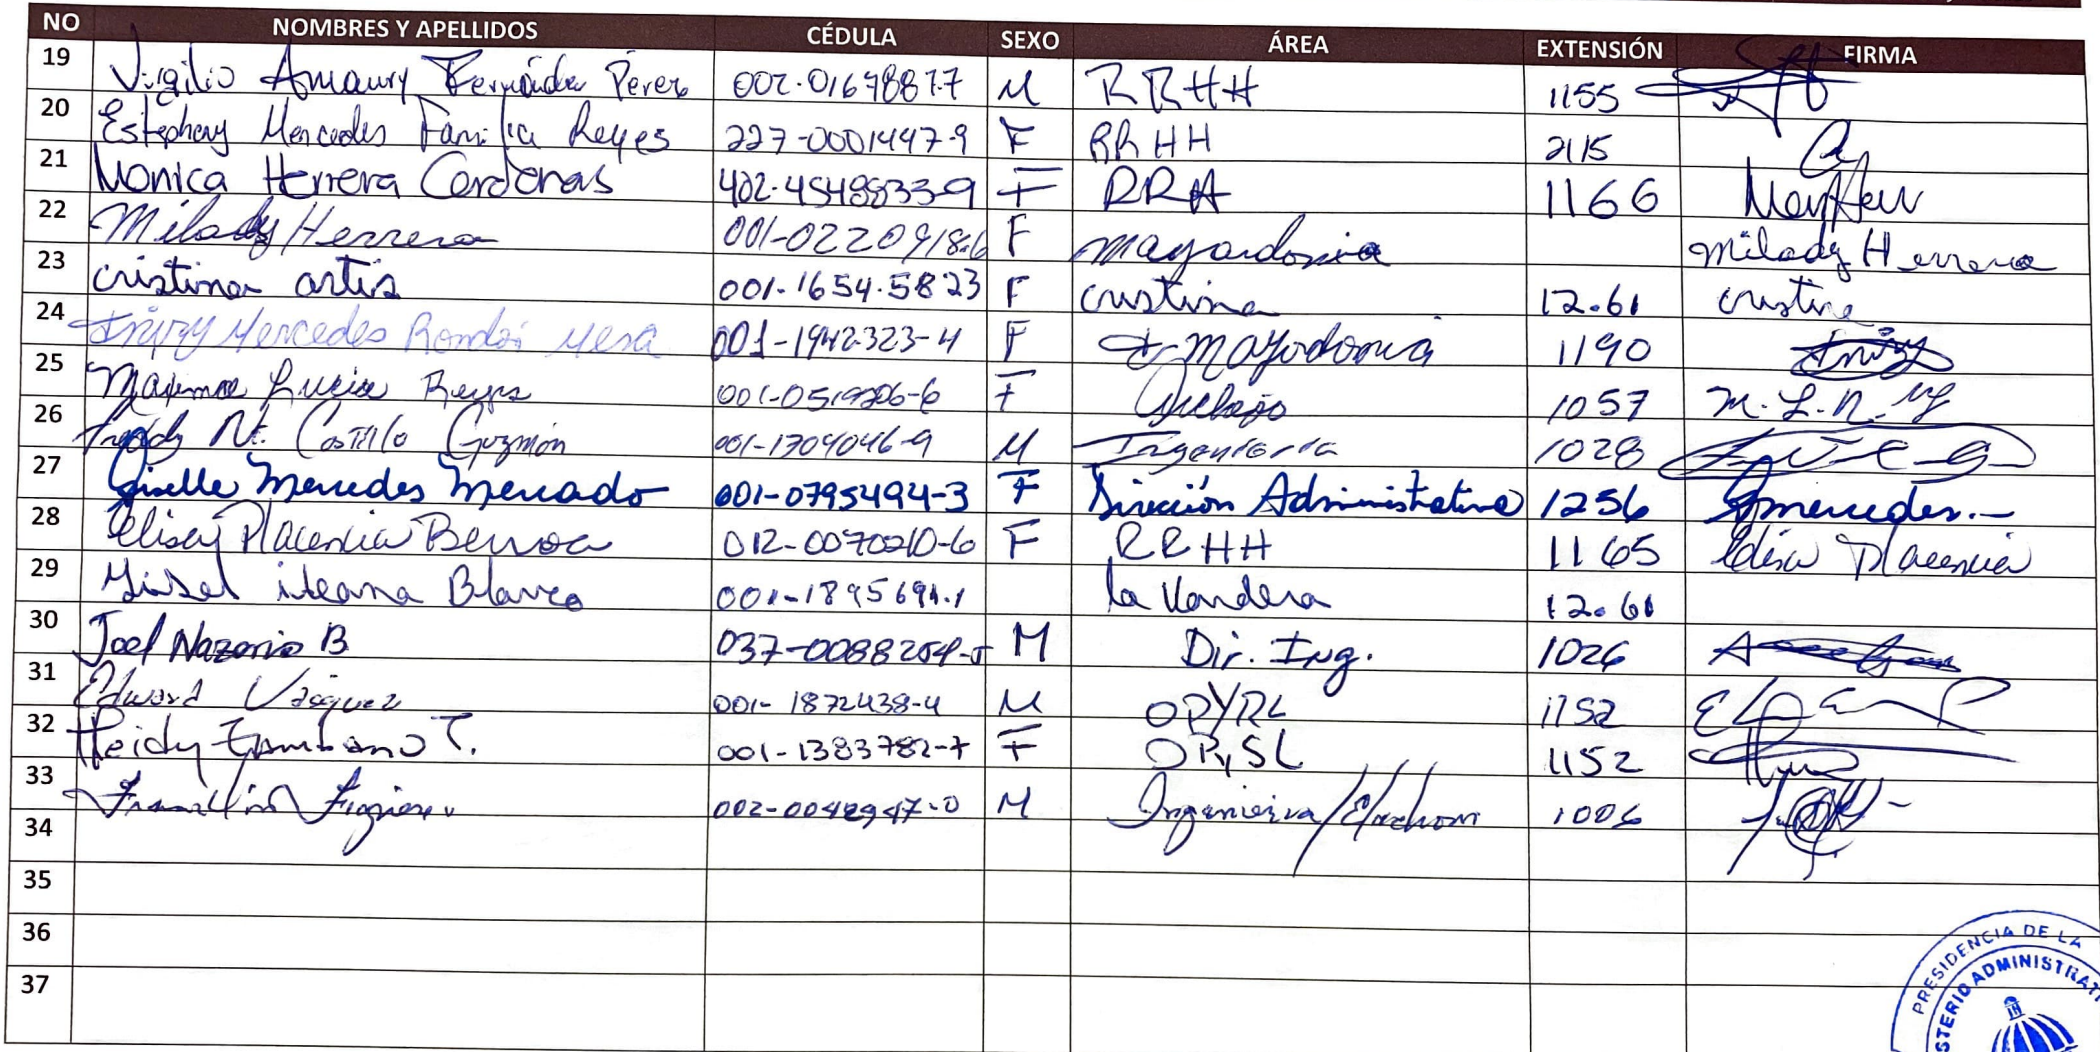 NO NOMBRES Y APELLIDOS CÉDULA SEXO ÁREA EXTENSIÓN FIRMA
19 Virgilio Amaury Fernández Pérez 002-0167887-7 M RRHH 1155
20 Estephany Mercedes Familia Reyes 227-0001447-9 F RRHH 2115
21 Monica Herrera Cardenas 402-4548833-9 F RRH 1166
22 Milady Herrera 001-0220918-6 F mayordomia Milady Herrera
23 cristina artis 001-1654-5823 F cristina 12.61 cristina
24 Mercedes Rondón Mesa 001-1942323-4 F Mayordomia 1190
25 Maxima Lucia Reyes F 1057 M.L.R.
26 Freddy Nt. Castillo Guzmán 001-1704046-9 M Ingenieria 1028
27 Giselle Mercedes Mercado 001-0795494-3 F Dirección Administrativa 1256 Gmercedes.-
28 Elisa Placencia Berroa 012-0070210-6 F RRHH 1165 Elisa Placencia
29 Gisel ileana Blanco 001-1895691.1 la Vandera 12.61
30 Joel Nazario B. M Dir. Ing. 1026
31 Edward Vásquez 001-1872438-4 M OPYRL 1152
32 Heidy Zambrano T. 001-1383782-7 F 1152
33 Franklin Figuereo M 1006
34
35
36
37
PRESIDENCIA DE LA